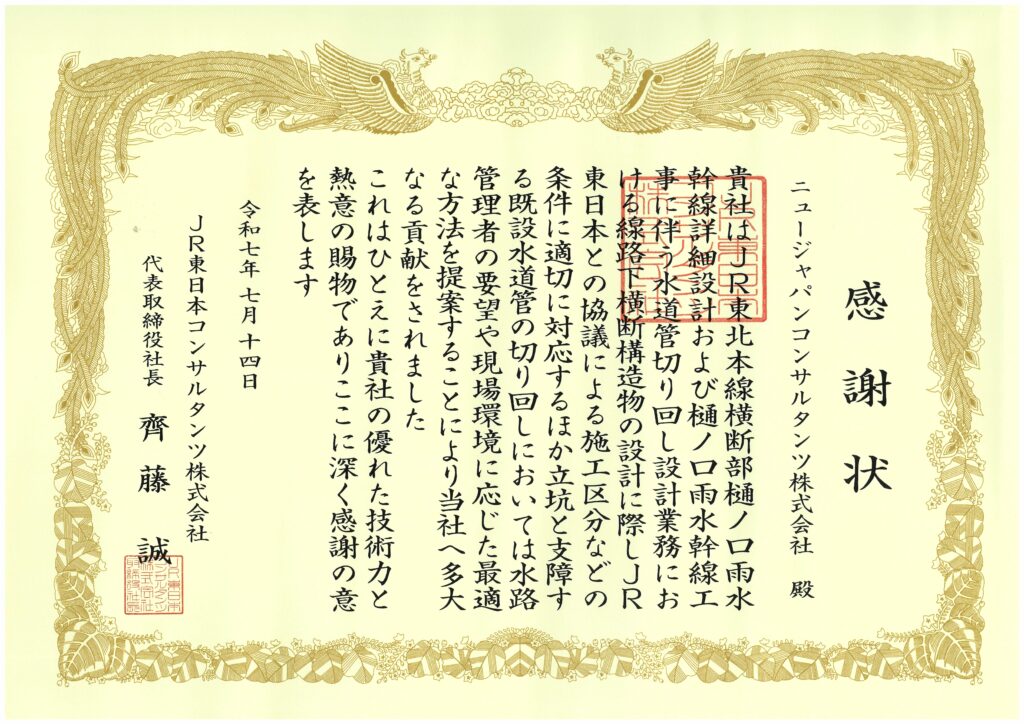 感謝状
ニュージャパンコンサルタンツ株式会社 殿
貴社はJR東北本線横断部樋ノ口雨水
幹線詳細設計および樋ノ口雨水幹線工
事に伴う水道管切り回し設計業務にお
ける線路下横断構造物の設計に際しJR
東日本との協議による施工区分などの
条件に適切に対応するほか立坑と支障す
る既設水道管の切り回しにおいては水路
管理者の要望や現場環境に応じた最適
な方法を提案することにより当社へ多大
なる貢献をされました
これはひとえに貴社の優れた技術力と
熱意の賜物でありここに深く感謝の意
を表します
令和七年七月十四日
JR東日本コンサルタンツ株式会社
代表取締役社長 齊藤 誠